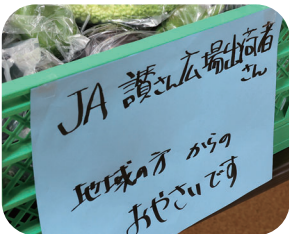 JA 讃さん広場出荷者さん
地域の方 からの
おやさいです